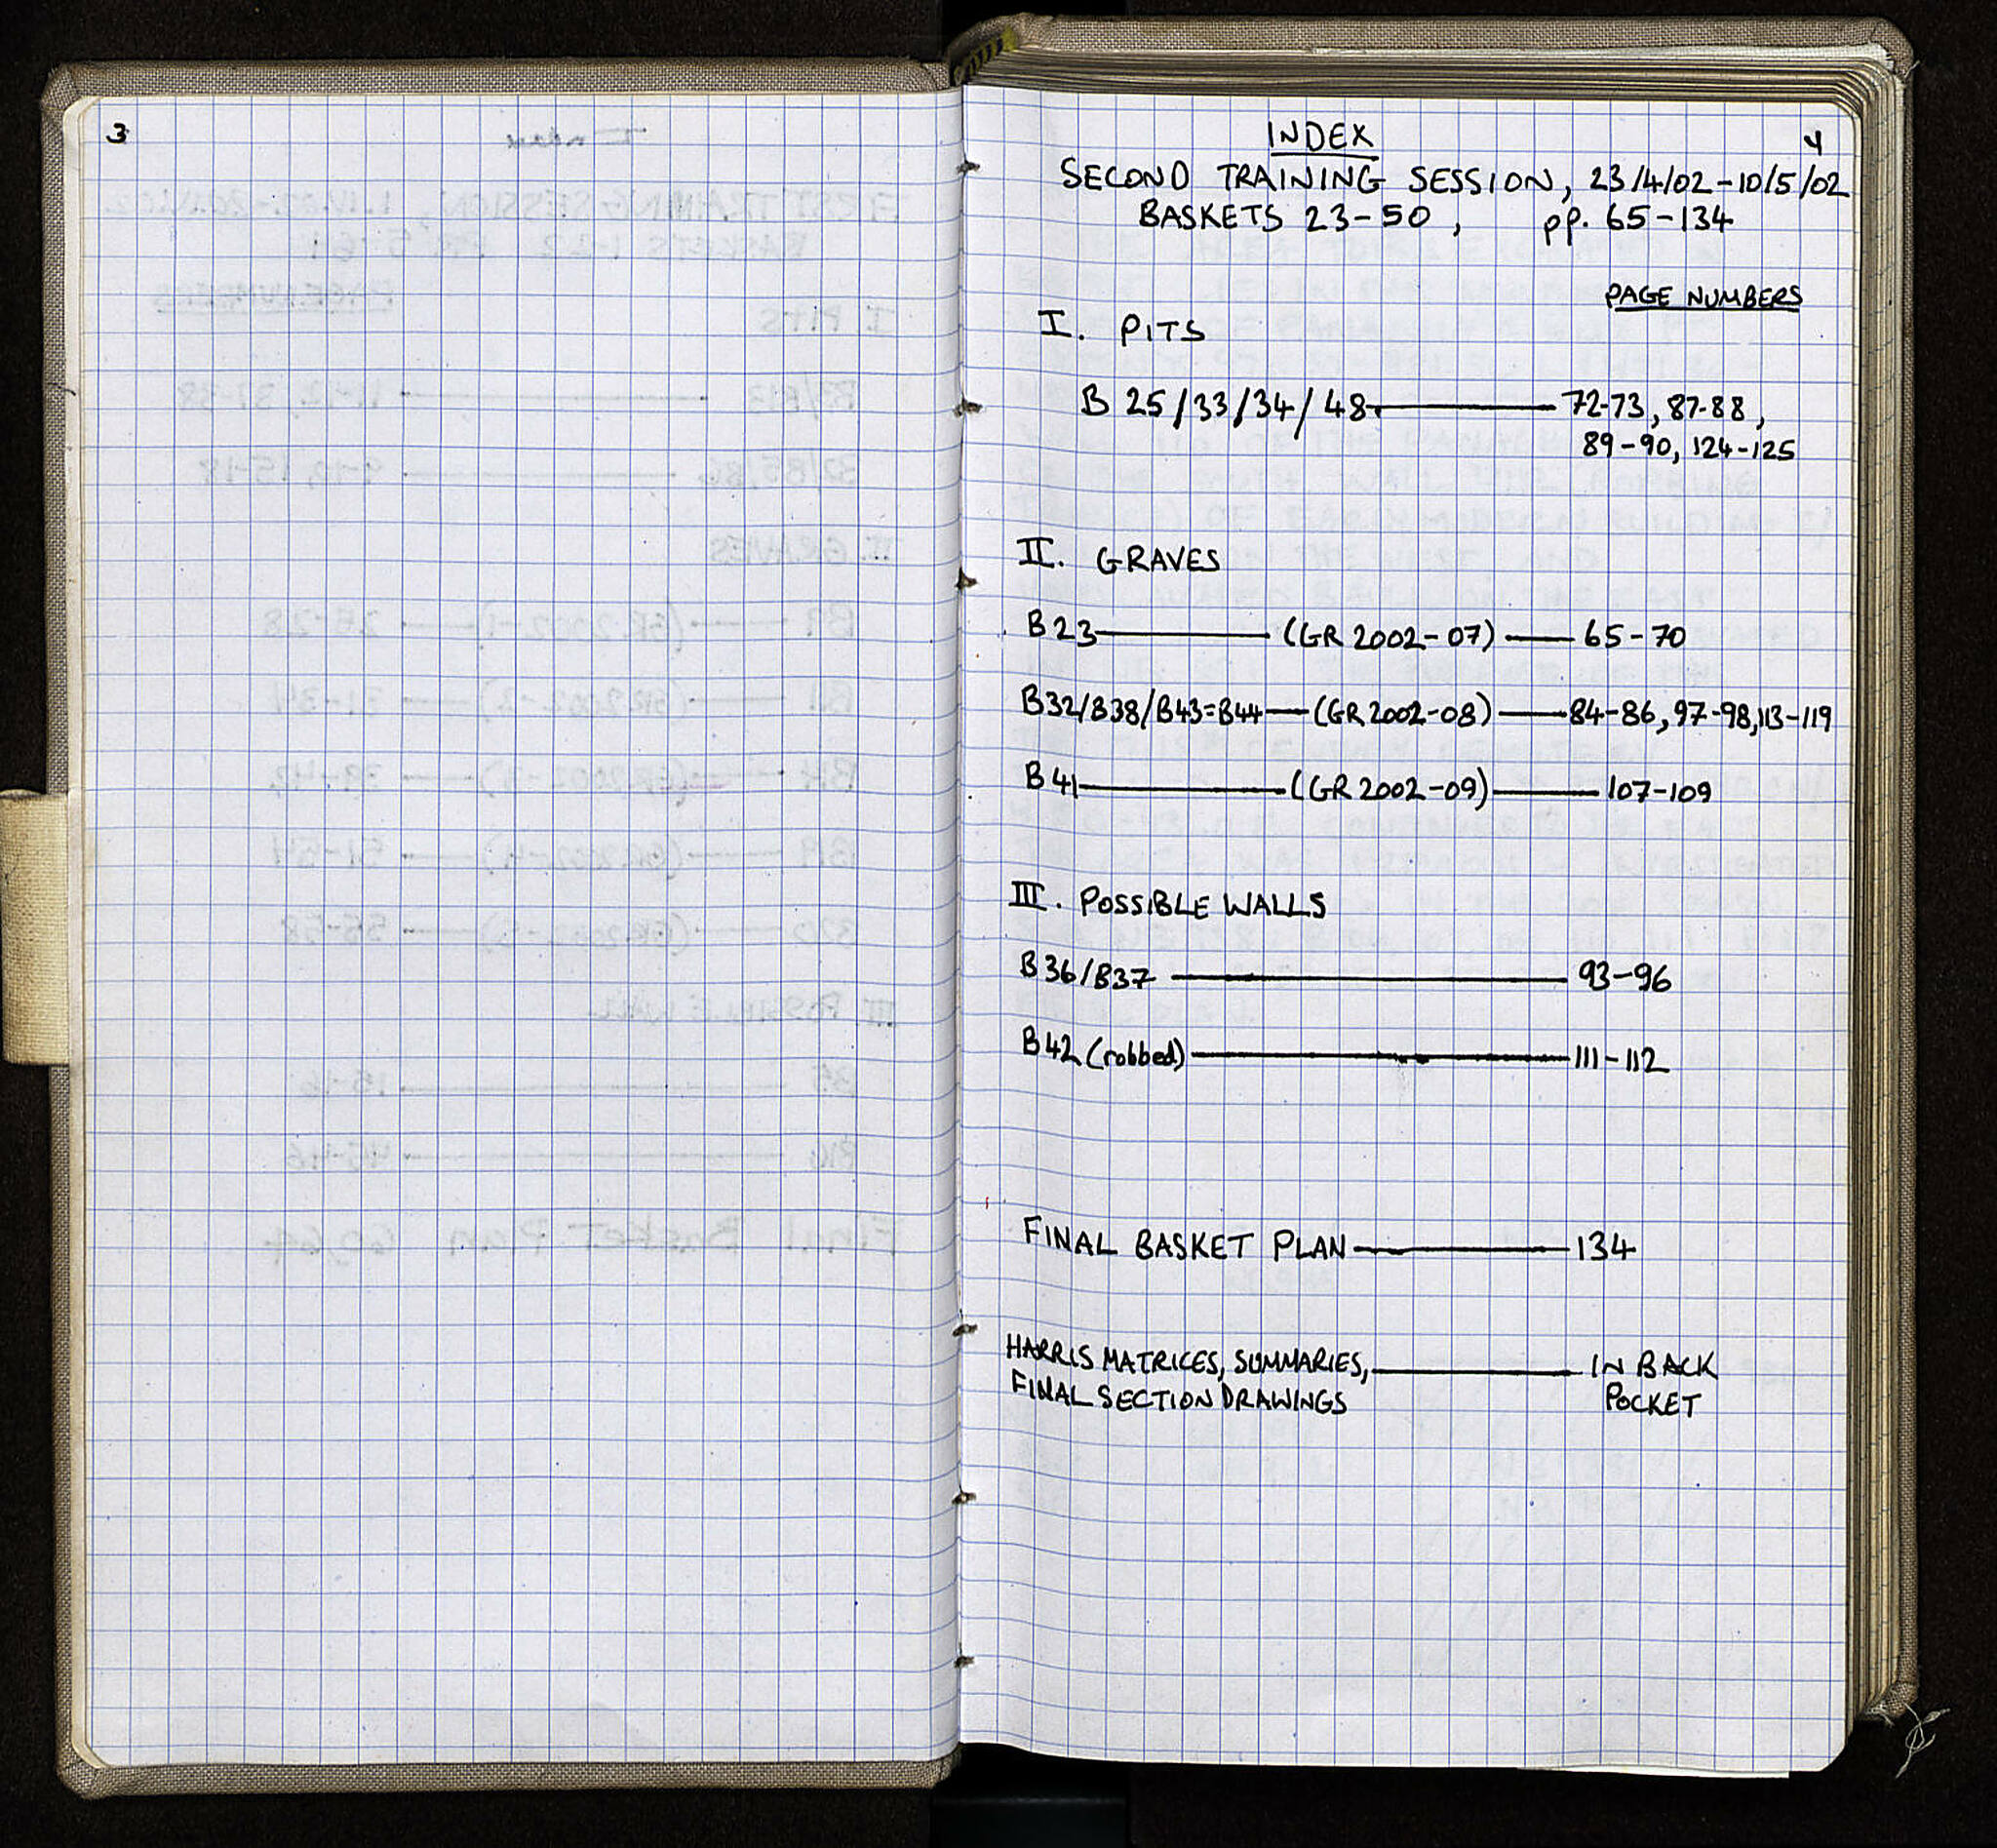 3
INDEX
4
SECOND TRAINING SESSION, 23/4/02-10/5/02
BASKETS 23-50, pp. 65-134
PAGE NUMBERS
I. PITS
B 25/33/34/48 72-73, 87-88,
89-90, 124-125
II. GRAVES
B23 (GR 2002-07) 65-70
B32/B38/B43=B44 (GR 2002-08) 84-86, 97-98, 113-119
B41 (GR 2002-09) 107-109
III. POSSIBLE WALLS
B36/B37 93-96
B42 (robbed) 111-112
FINAL BASKET PLAN 134
HARRIS MATRICES, SUMMARIES, IN BACK
FINAL SECTION DRAWINGS POCKET